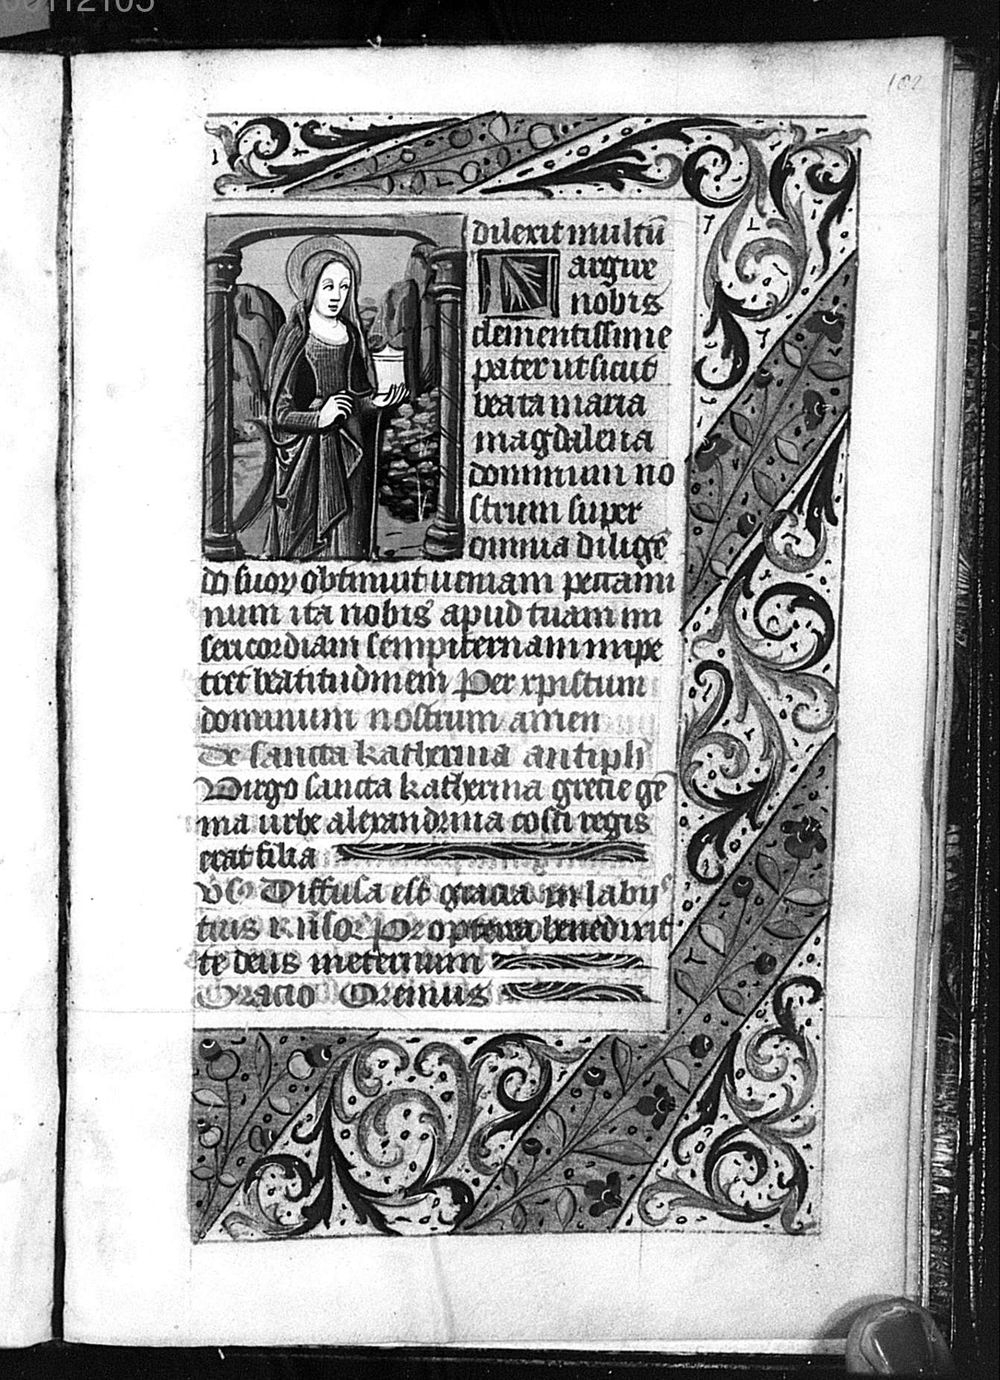 00112105
102
dilexit multũ
Largire
nobis
clementissime
pater ut sicut
beata maria
magdalena
dominum no
strum super
omnia diligẽ
do suoꝝ obtinuit ueniam peccami
num ita nobis apud tuam mi
sericordiam sempiternam impe
tret beatitudinem Per xpistum
dominum nostrum amen
De sancta katherina antiph
Virgo sancta katherina grecie gẽ
ma urbe alexandrina costi regis
erat filia
Diffusa est gracia in labijs
tuis Propterea benedixit
te deus ineternum
Oracio Oremus